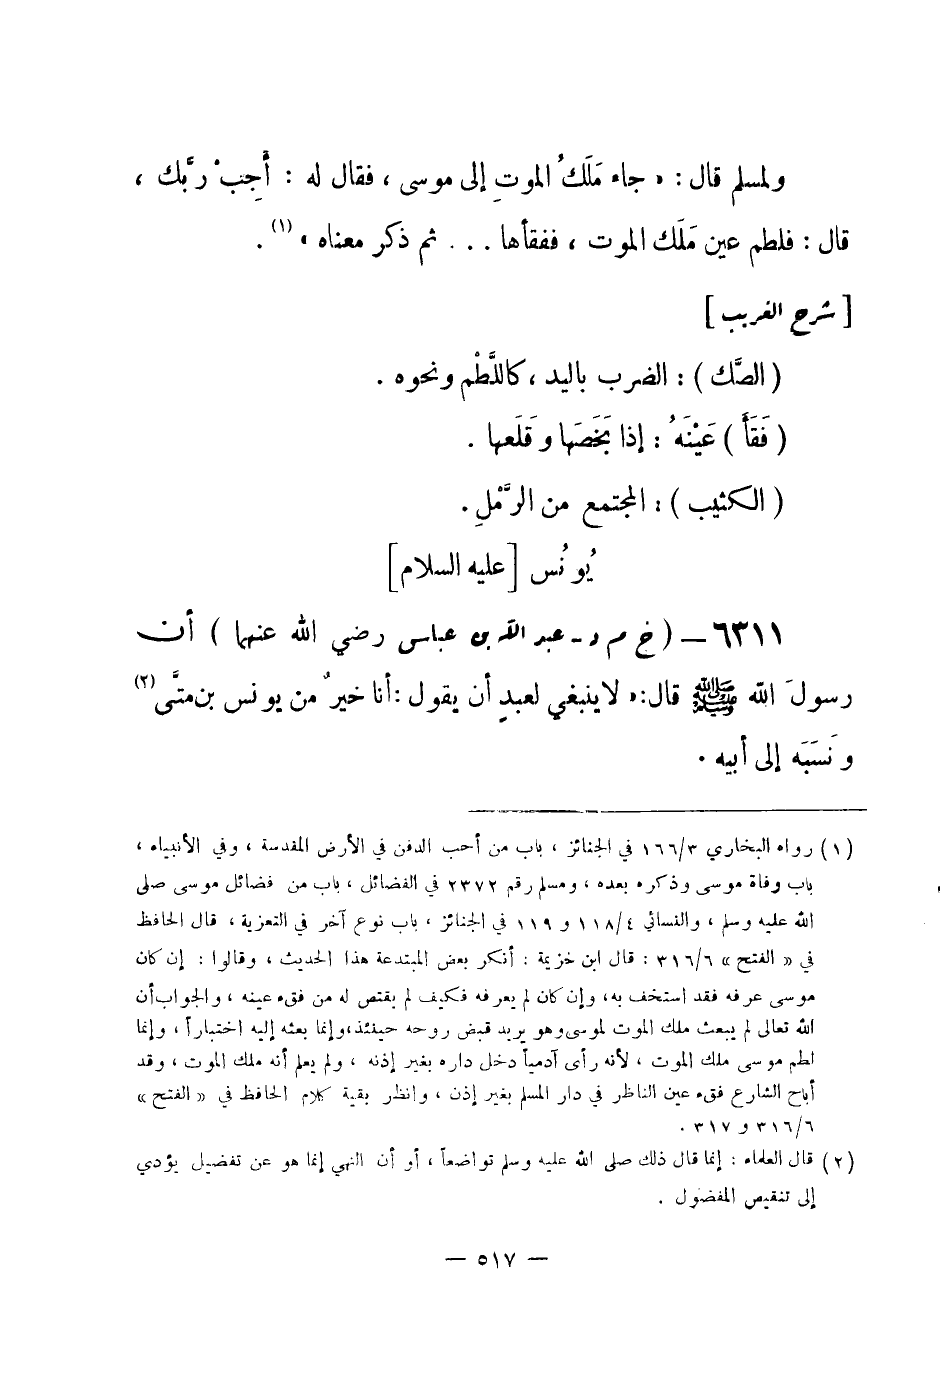 ولمسلم قال : « جاء مَلَكُ الموتِ إلى موسى ، فقال له : أَجِبْ ربَّك ،
قال : فلطم عين مَلَك الموت ، ففقأها . . . ثم ذكر معناه » (١) .
[ شرح الغريب ]
( الصَّك ) : الضرب باليد ، كاللَّطْم ونحوه .
( فَقَأَ ) عَيْنَهُ : إذا بَخَصَها وقَلَعها .
( الكثيب ) : المجتمع من الرَّمْلِ .
يُونُس [ عليه السلام ]
٦٣١١ – ( خ م د - عبد الله بن عباس رضي الله عنهما ) أن
رسولَ الله ﷺ قال : « لا ينبغي لعبدٍ أن يقول : أنا خيرٌ من يونس بن متَّى (٢)
ونَسَبَه إلى أبيه .
(١) رواه البخاري ١٦٦/٣ في الجنائز ، باب من أحب الدفن في الأرض المقدسة ، وفي الأنبياء ،
باب وفاة موسى وذكره بعده ، ومسلم رقم ٢٣٧٢ في الفضائل ، باب من فضائل موسى صلى
الله عليه وسلم ، والنسائي ١١٨/٤ و ١١٩ في الجنائز ، باب نوع آخر في التعزية ، قال الحافظ
في « الفتح » ٣١٦/٦ : قال ابن خزيمة : أنكر بعض المبتدعة هذا الحديث ، وقالوا : إن كان
موسى عرفه فقد استخف به ، وإن كان لم يعرفه فكيف لم يقتص له من فقء عينه ، والجواب أن
الله تعالى لم يبعث ملك الموت لموسى وهو يريد قبض روحه حينئذ ، وإنما بعثه إليه اختباراً ، وإنما
لطم موسى ملك الموت ، لأنه رأى آدمياً دخل داره بغير إذنه ، ولم يعلم أنه ملك الموت ، وقد
أباح الشارع فقء عين الناظر في دار المسلم بغير إذن ، وانظر بقية كلام الحافظ في « الفتح »
٣١٦/٦ و ٣١٧ .
(٢) قال العلماء : إنما قال ذلك صلى الله عليه وسلم تواضعاً ، أو أن النهي إنما هو عن تفضيل يؤدي
إلى تنقيص المفضول .
– ٥١٧ –